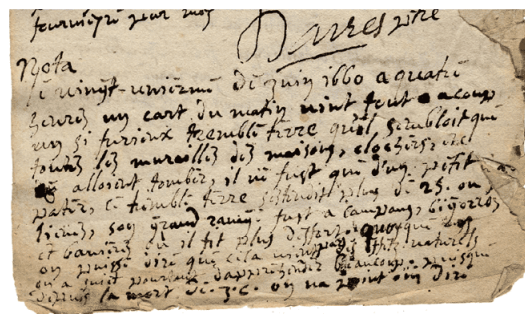 pour moy
Barres ptre
Nota
Le vingt-uniesme de juin 1660 a quatre
heures un cart du matin vint tout a coup
un si furieux tremble terre quil sembloit que
toutes les murailles des maisons, clochers, etc
alloient tomber, il ne fust que d'un petit
pater, ce tremble terre sestendit plus de 25. ou
lieues, son grand fust a Campan, bigorre
et il fit plus quoyque
on puisse dire que cela vient des naturels
on a sujet pourtant dapprehender beaucoup, puisque
depuis la mort de J.C. on na point oui dire